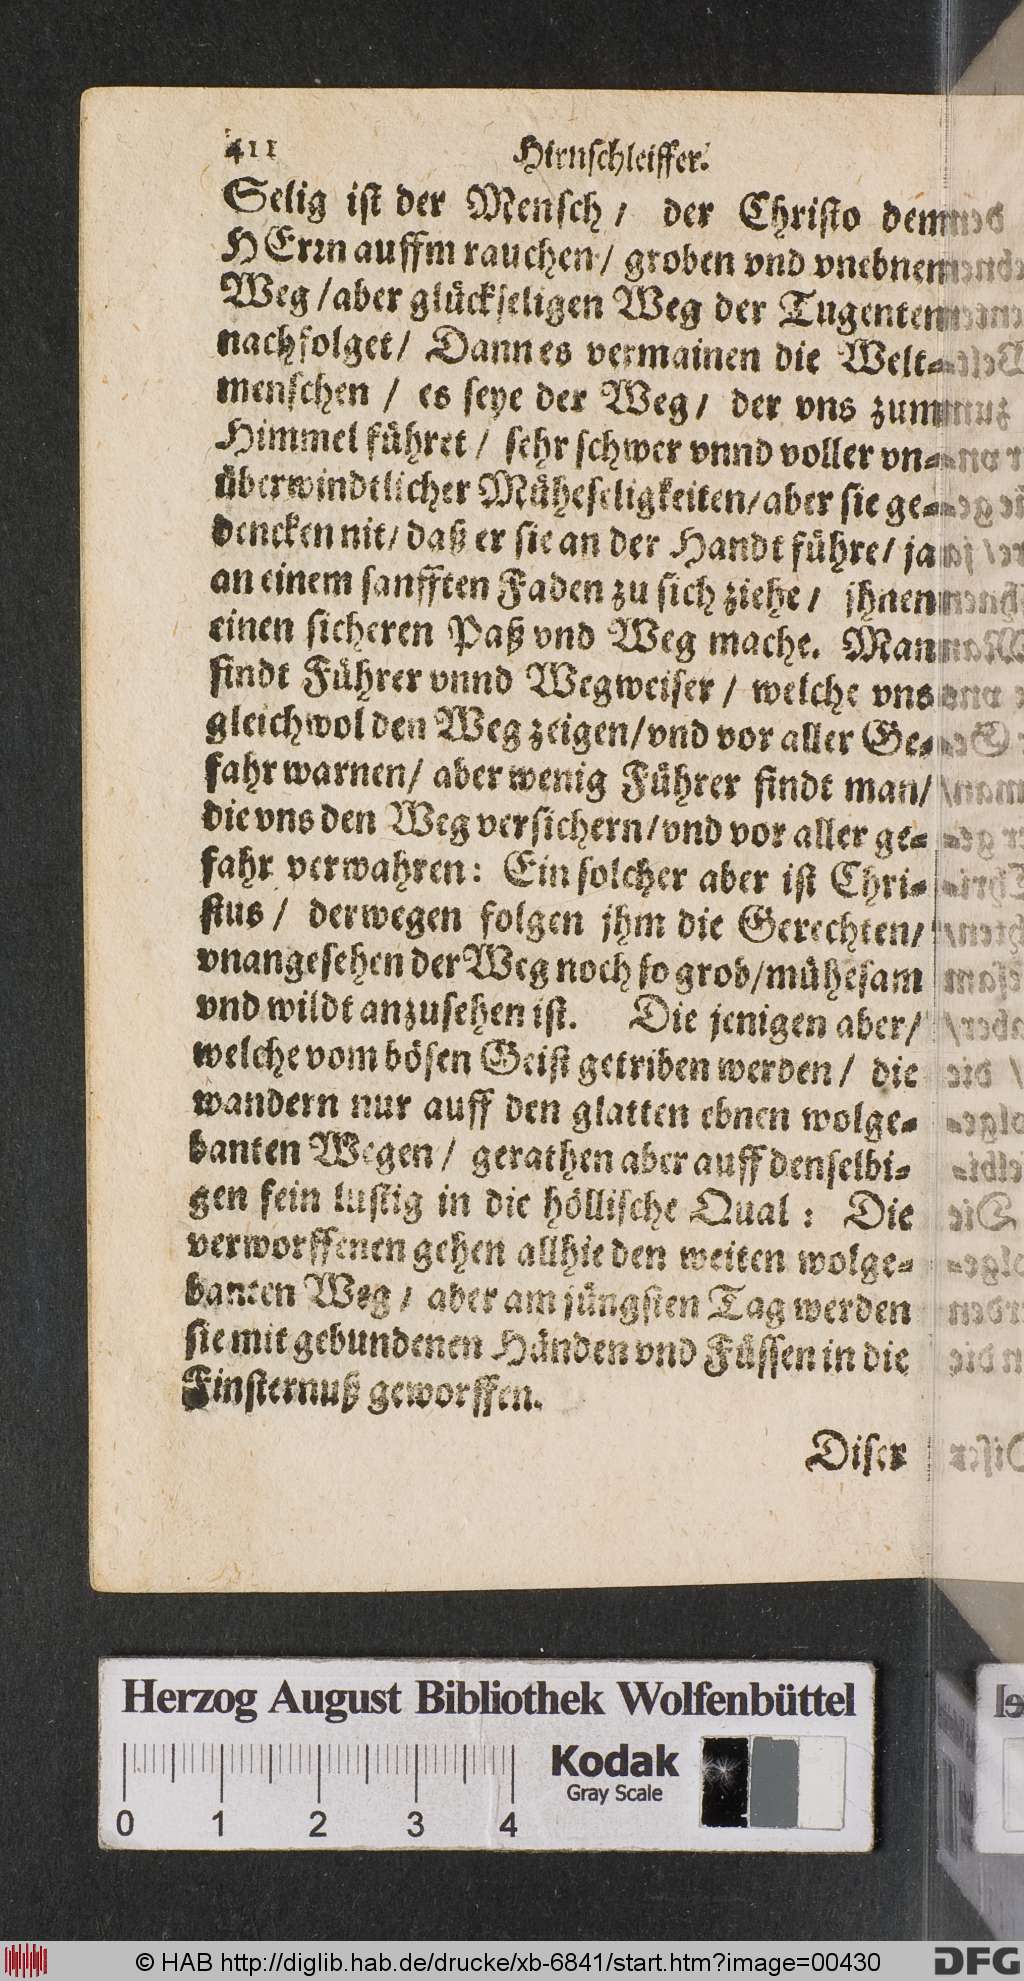 411 Hirnschleiffer.
Selig ist der Mensch / der Christo dem
HErrn auffm rauchen / groben vnd vnebnen
Weg / aber glückseligen Weg der Tugenten
nachfolget / Dann es vermainen die Welt-
menschen / es seye der Weg / der vns zum
Himmel führet / sehr schwer vnnd voller vn-
überwindtlicher Müheseligkeiten / aber sie ge-
dencken nit / daß er sie an der Handt führe / ja
an einem sanfften Faden zu sich ziehe / jhnen
einen sicheren Paß vnd Weg mache. Man
findt Führer vnnd Wegweiser / welche vns
gleichwol den Weg zeigen / vnd vor aller Ge-
fahr warnen / aber wenig Führer findt man /
die vns den Weg versichern / vnd vor aller ge-
fahr verwahren: Ein solcher aber ist Chri-
stus / derwegen folgen jhm die Gerechten /
vnangesehen der Weg noch so grob / mühesam
vnd wildt anzusehen ist. Die jenigen aber /
welche vom bösen Geist getriben werden / die
wandern nur auff den glatten ebnen wolge-
banten Wegen / gerathen aber auff denselbi-
gen fein lustig in die höllische Qual : Die
verworffenen gehen allhie den weiten wolge-
banten Weg / aber am jüngsten Tag werden
sie mit gebundenen Händen vnd Füssen in die
Finsternuß geworffen.
Diser
Herzog August Bibliothek Wolfenbüttel
Kodak
Gray Scale
0 1 2 3 4
© HAB http://diglib.hab.de/drucke/xb-6841/start.htm?image=00430
DFG